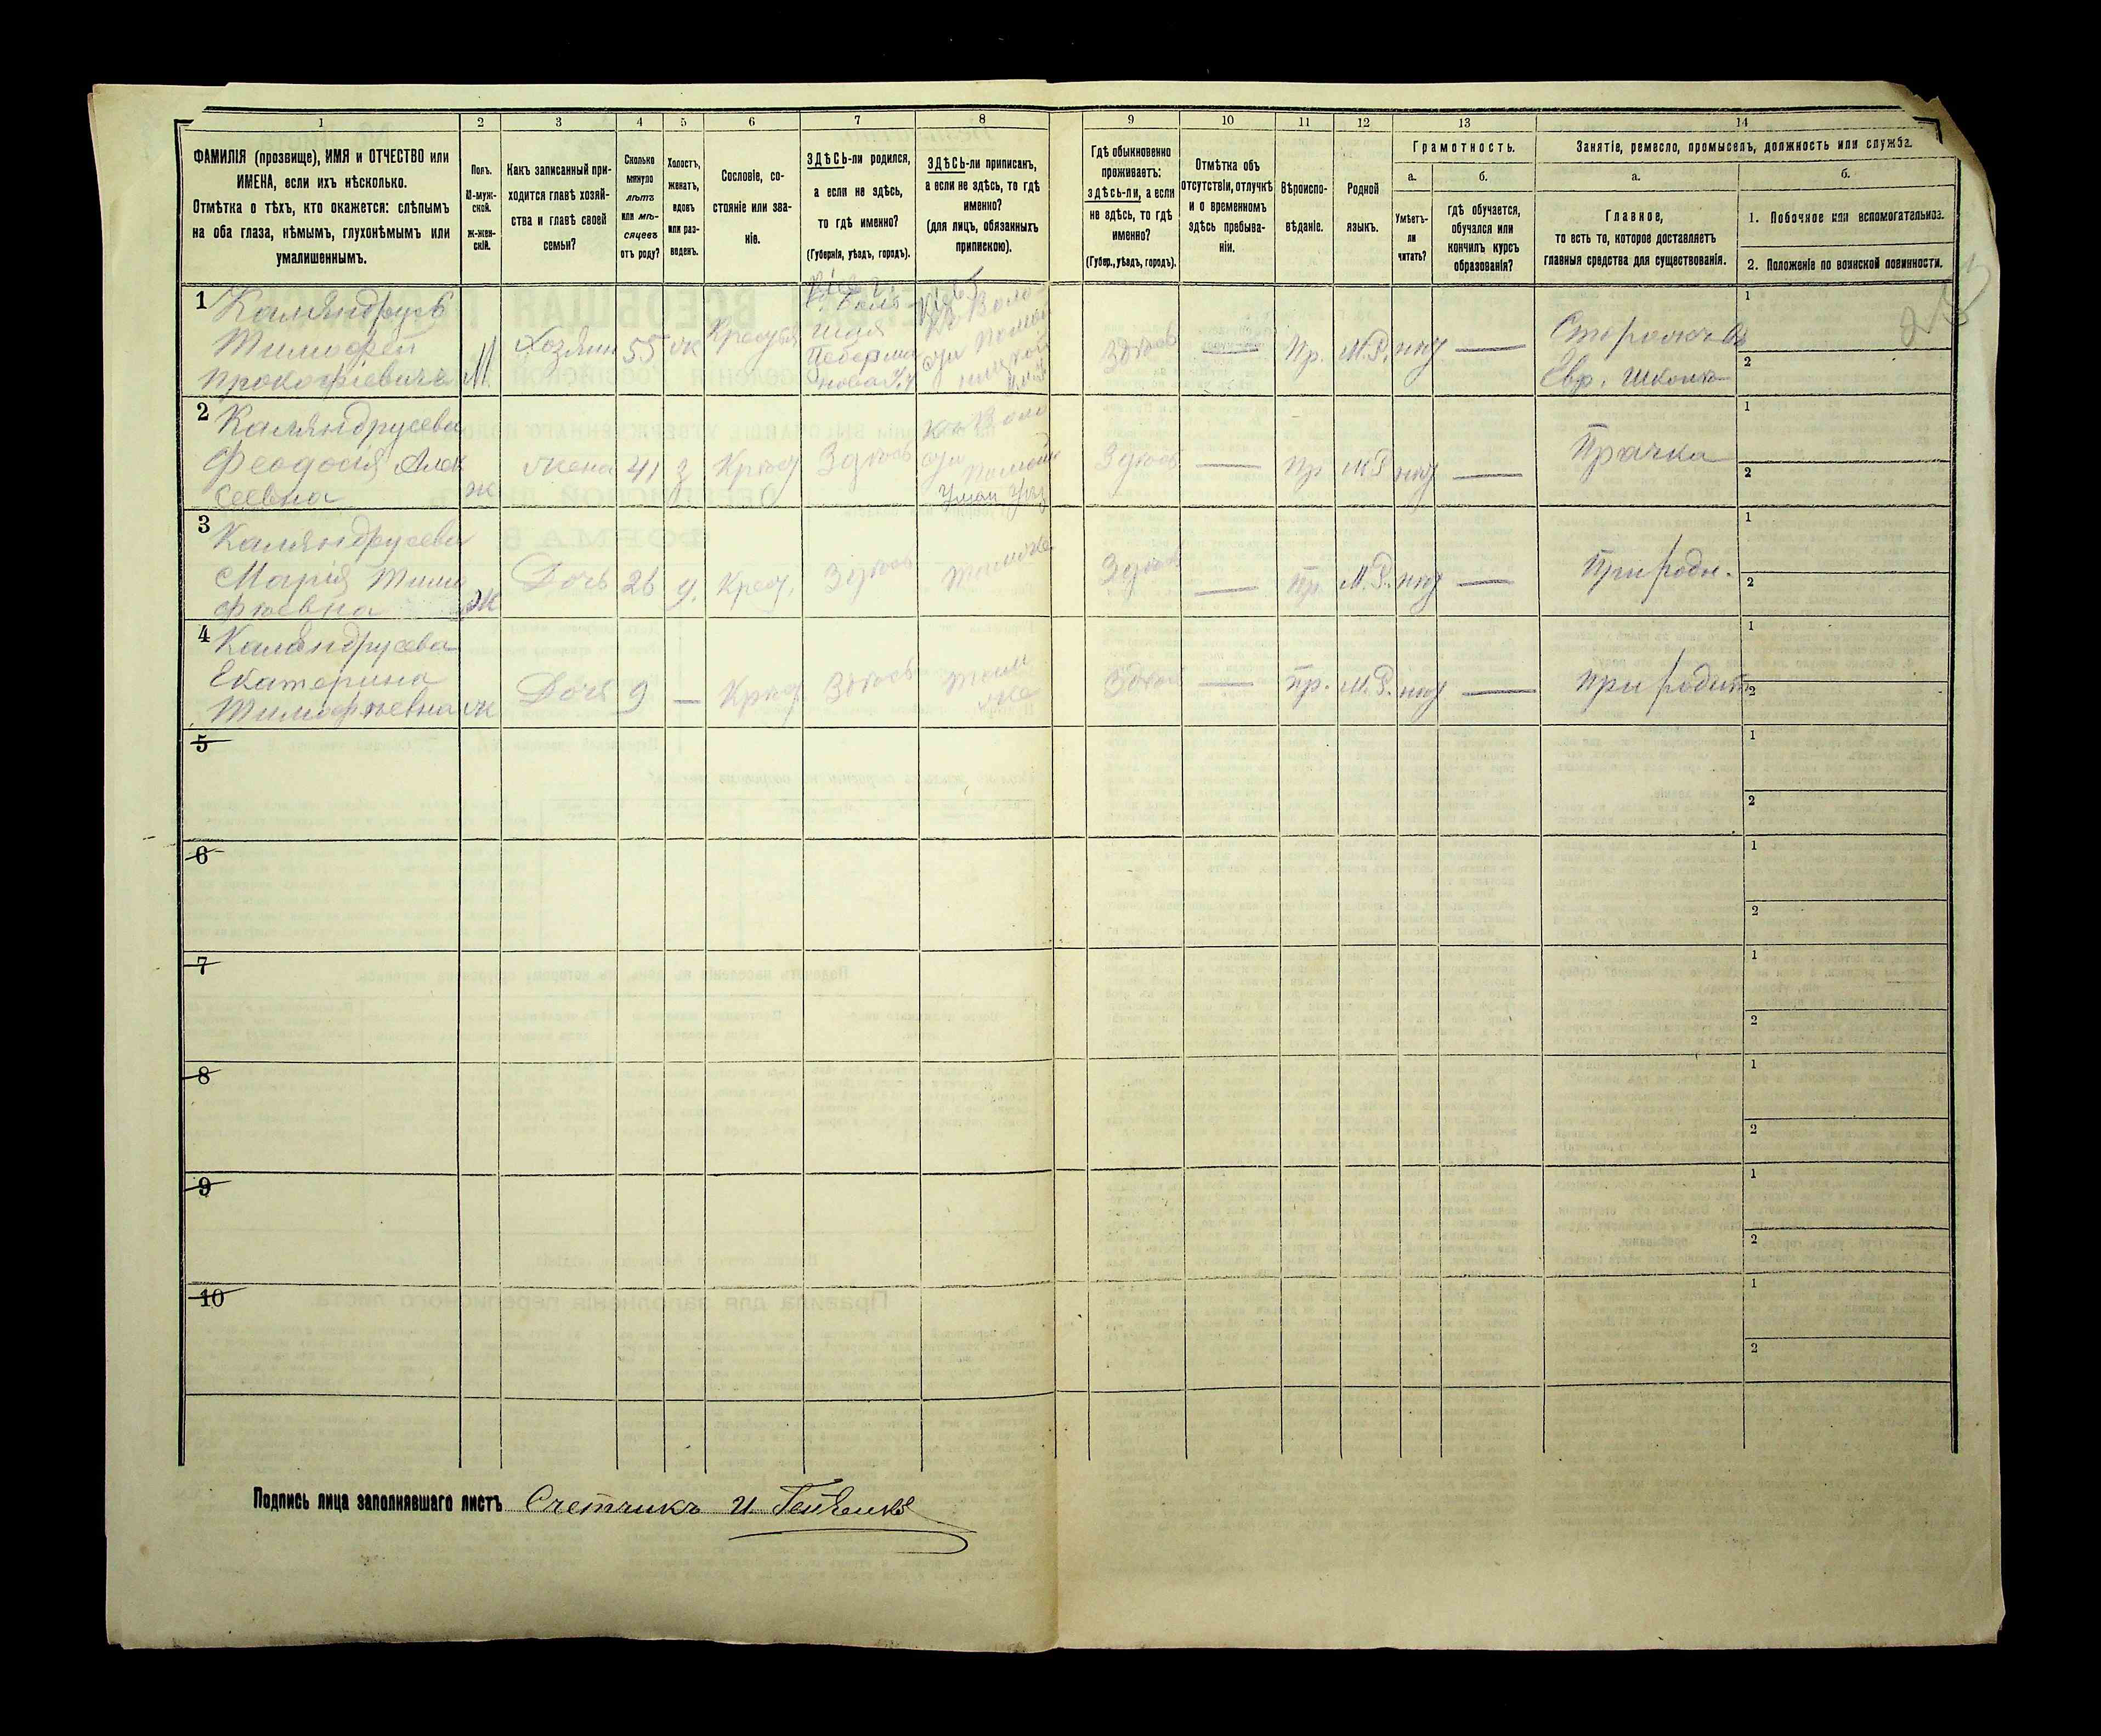 1
2
3
4
5
6
7
8
9
10
11
12
13
14
ФАМИЛІЯ (прозвище), ИМЯ и ОТЧЕСТВО или
ИМЕНА, если ихъ нѣсколько.
Отмѣтка о тѣхъ, кто окажется: слѣпымъ
на оба глаза, нѣмымъ, глухонѣмымъ или
умалишеннымъ.
Полъ.
М-муж-
ской.
ж-жен-
скій.
Какъ записанный при-
ходится главѣ хозяй-
ства и главѣ своей
семьи?
Сколько
минуло
лѣтъ
или мѣ-
сяцевъ
отъ роду?
Холостъ,
женатъ,
вдовъ
или раз-
веденъ.
Сословіе, со-
стояніе или зва-
ніе.
ЗДѢСЬ-ли родился,
а если не здѣсь,
то гдѣ именно?
(Губернія, уѣздъ, городъ).
ЗДѢСЬ-ли приписанъ,
а если не здѣсь, то гдѣ
именно?
(для лицъ, обязанныхъ
припискою).
Гдѣ обыкновенно
проживаетъ:
здѣсь-ли, а если
не здѣсь, то гдѣ
именно?
(Губер., уѣздъ, городъ).
Отмѣтка объ
отсутствіи, отлучкѣ
и о временномъ
здѣсь пребыва-
ніи.
Вѣроиспо-
вѣданіе.
Родной
языкъ.
Грамотность.
а.
Умѣетъ-
ли
читать?
б.
гдѣ обучается,
обучался или
кончилъ курсъ
образованія?
Занятіе, ремесло, промыселъ, должность или служба.
а.
Главное,
то есть то, которое доставляетъ
главныя средства для существованія.
б.
1. Побочное или вспомогательное.
2. Положеніе по воинской повинности.
1
Каляндрусъ
Тимофей
Прокофіевичъ
М
Хозяинъ
55
ж
1
Сторожъ
Евр.
2
2
Каляндрусева
Феодосія Алек
сеевна
ж
жена
41
з
Здѣсь
Здѣсь
—
Пр
М.Р.
—
Прачка
1
2
3
Каляндрусева
Марія Тимо
фѣевна
ж
Дочь
26
Крест.
Здѣсь
Здѣсь
—
Пр
М.Р.
—
При родн.
1
2
4
Каляндрусева
Екатерина
Тимофѣевна
ж
Дочь
9
—
Здѣсь
Здѣсь
—
Пр.
М.Р.
—
При родит
1
2
5
1
2
6
1
2
7
1
2
8
1
2
9
1
2
10
1
2
Подпись лица заполнявшаго листъ Счетчикъ И.